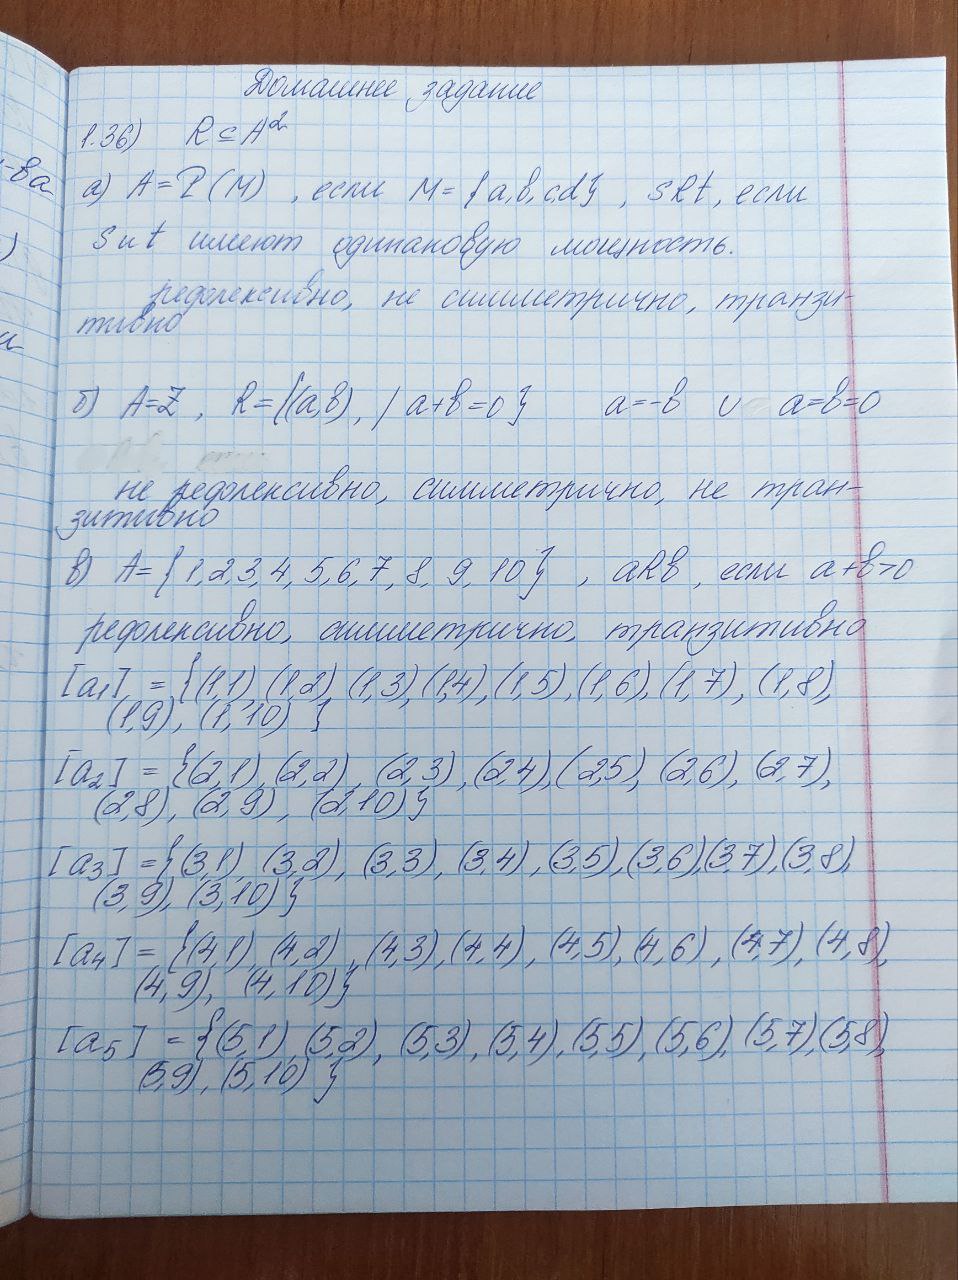 Домашнее задание
1.36) R ⊆ A²
а) A = P(M) , если M = {a,b,c,d} , sRt, если
s и t имеют одинаковую мощность.
рефлексивно, не симметрично, транзи-
тивно
б) A=Z, R={(a,b), / a+b=0} a=-b и a=b=0
не рефлексивно, симметрично, не тран-
зитивно
в) A={1,2,3,4,5,6,7,8,9,10} , aRb, если a+b>0
рефлексивно, симметрично, транзитивно
[a₁] = {(1,1) (1,2), (1,3), (1,4), (1,5), (1,6), (1,7), (1,8),
(1,9), (1,10) }
[a₂] = {(2,1), (2,2), (2,3), (2,4), (2,5), (2,6), (2,7),
(2,8), (2,9), (2,10)}
[a₃] = {(3,1), (3,2), (3,3), (3,4), (3,5), (3,6) (3,7), (3,8),
(3,9), (3,10)}
[a₄] = {(4,1), (4,2), (4,3), (4,4), (4,5), (4,6), (4,7), (4,8),
(4,9), (4,10)}
[a₅] = {(5,1), (5,2), (5,3), (5,4), (5,5), (5,6), (5,7), (5,8),
(5,9), (5,10) }